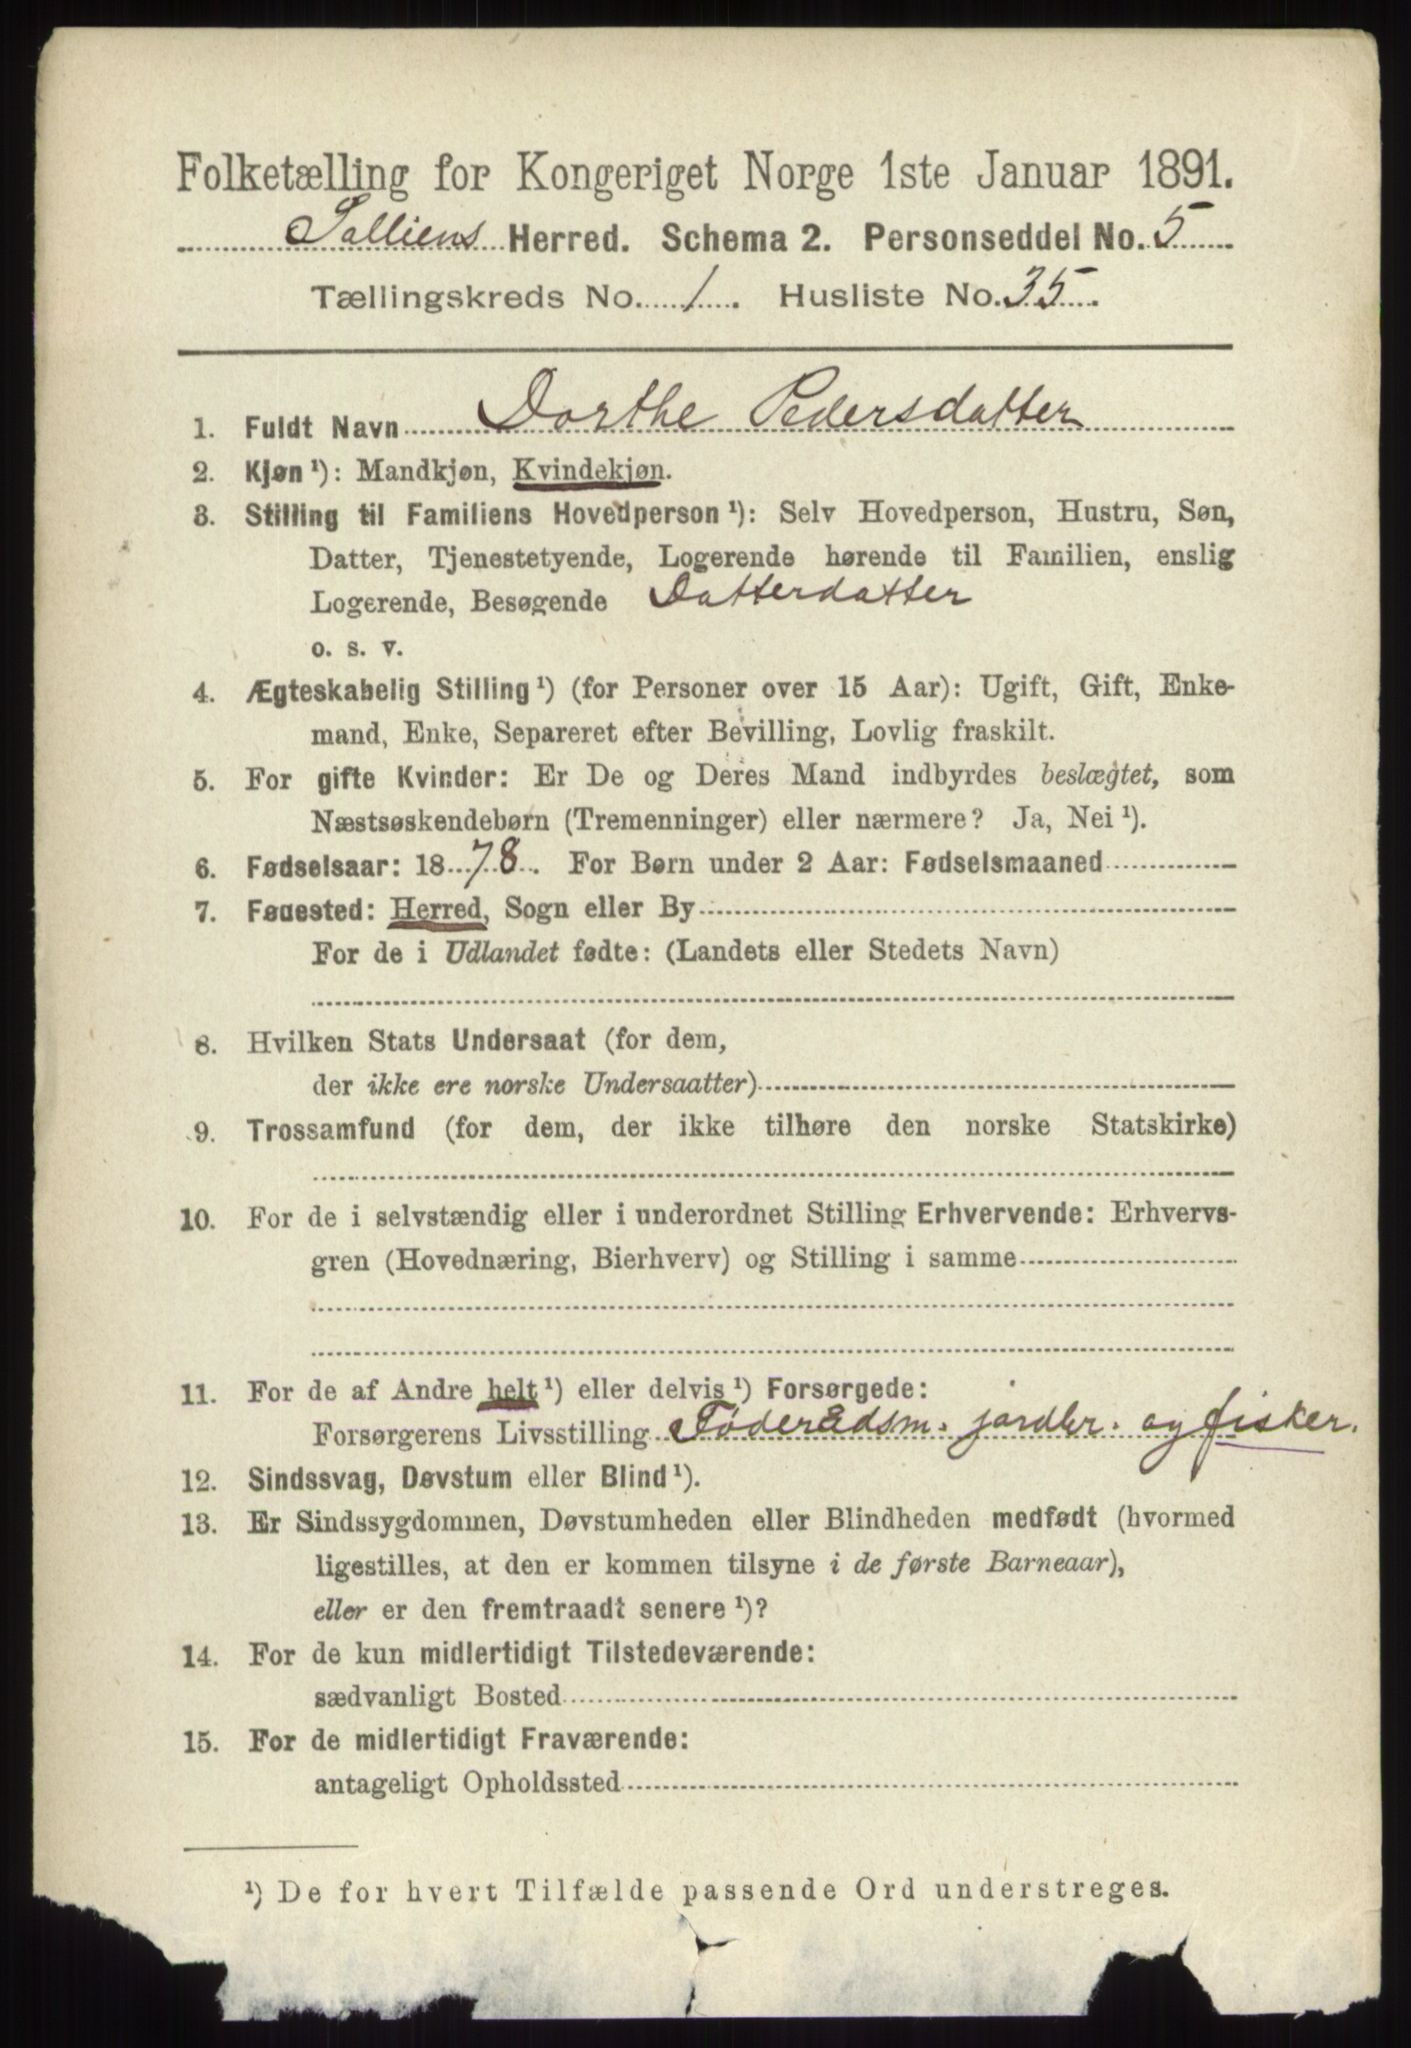 Folketælling for Kongeriget Norge 1ste Januar 1891.
Selliens Herred. Schema 2. Personseddel No. 5
Tællingskreds No. 1. Husliste No. 35.
1. Fuldt Navn Dorthe Pedersdatter
2. Kjøn ¹): Mandkjøn, Kvindekjøn.
3. Stilling til Familiens Hovedperson ¹): Selv Hovedperson, Hustru, Søn,
Datter, Tjenestetyende, Logerende hørende til Familien, enslig
Logerende, Besøgende Datterdatter
o. s. v.
4. Ægteskabelig Stilling ¹) (for Personer over 15 Aar): Ugift, Gift, Enke-
mand, Enke, Separeret efter Bevilling, Lovlig fraskilt.
5. For gifte Kvinder: Er De og Deres Mand indbyrdes beslægtet, som
Næstsøskendebørn (Tremenninger) eller nærmere? Ja, Nei ¹).
6. Fødselsaar: 1878. For Børn under 2 Aar: Fødselsmaaned
7. Fødested: Herred, Sogn eller By
For de i Udlandet fødte: (Landets eller Stedets Navn)
8. Hvilken Stats Undersaat (for dem,
der ikke ere norske Undersaatter)
9. Trossamfund (for dem, der ikke tilhøre den norske Statskirke)
10. For de i selvstændig eller i underordnet Stilling Erhvervende: Erhvervs-
gren (Hovednæring, Bierhverv) og Stilling i samme
11. For de af Andre helt ¹) eller delvis ¹) Forsørgede:
Forsørgerens Livsstilling Føderådsm. jordbr. og fisker.
12. Sindssvag, Døvstum eller Blind ¹).
13. Er Sindssygdommen, Døvstumheden eller Blindheden medfødt (hvormed
ligestilles, at den er kommen tilsyne i de første Barneaar),
eller er den fremtraadt senere ¹)?
14. For de kun midlertidigt Tilstedeværende:
sædvanligt Bosted
15. For de midlertidigt Fraværende:
antageligt Opholdssted
¹) De for hvert Tilfælde passende Ord understreges.